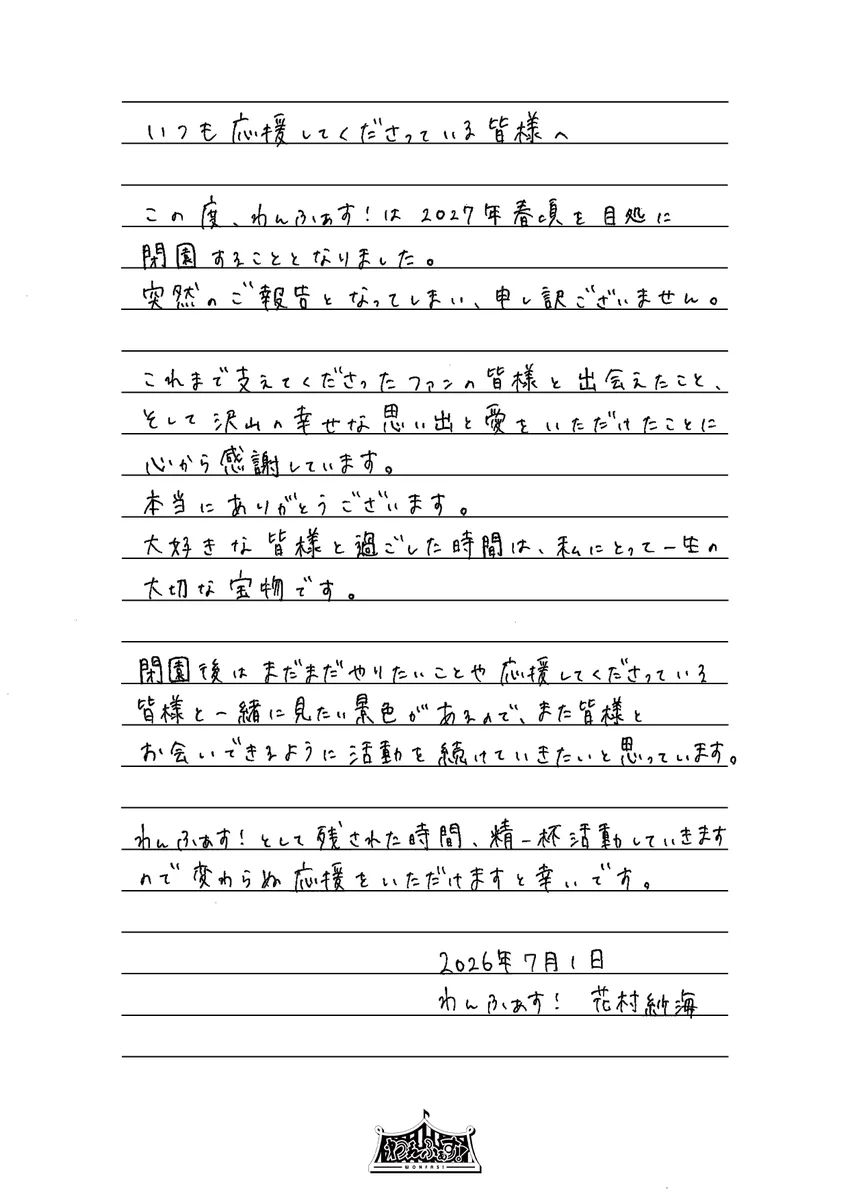 いつも応援してくださっている皆様へ
この度、わんふぁす!は2027年春頃を目処に
閉園することとなりました。
突然のご報告となってしまい、申し訳ございません。
これまで支えてくださったファンの皆様と出会えたこと、
そして沢山の幸せな思い出と愛をいただけたことに
心から感謝しています。
本当にありがとうございます。
大好きな皆様と過ごした時間は、私にとって一生の
大切な宝物です。
閉園後はまだまだやりたいことや応援してくださっている
皆様と一緒に見たい景色があるので、また皆様と
お会いできるように活動を続けていきたいと思っています。
わんふぁす!として残された時間、精一杯活動していきます
ので変わらぬ応援をいただけますと幸いです。
2026年7月1日
わんふぁす! 花村紗海
わんふぁす!
WONFAS!